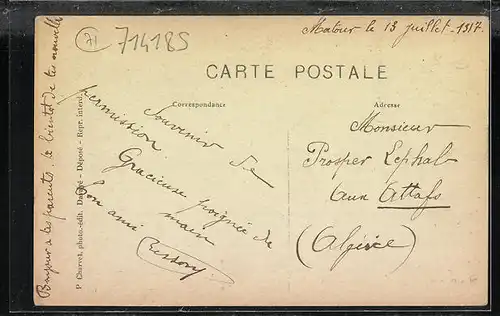 71
714185
Matour le 13 juillet 1917.
CARTE POSTALE
Correspondance
Adresse
Souvenir de
permission.
Gracieuse poignée de
main
Bon ami
Monsieur
Prosper Lephal
aux Attafs
(Algérie)
Bonjour à tes parents. à bientôt de tes nouvelles
P Charvet, photo.-édit. Déposé - Repr. interd.